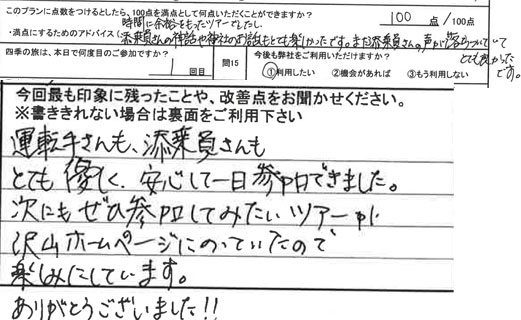 このプランに点数をつけるとしたら、100点を満点として何点いただくことができますか？ 100 点 /100点
時間に余裕をもったツアーでしたし、
・満点にするためのアドバイス( 添乗員さんの神話や神社のお話もとても楽しかったです。また添乗員さんの声が落ちついていて
とても良かった
です。
四季の旅は、本日で何度目のご参加ですか？ 1 回目 問15 今後も弊社をご利用いただけますか？
①利用したい ②機会があれば ③もう利用しない
今回最も印象に残ったことや、改善点をお聞かせください。
※書ききれない場合は裏面をご利用下さい
運転手さんも、添乗員さんも
とても優しく、安心して一日参加できました。
次にもぜひ参加してみたいツアーが
沢山ホームページにのっていたので
楽しみにしています。
ありがとうございました!!